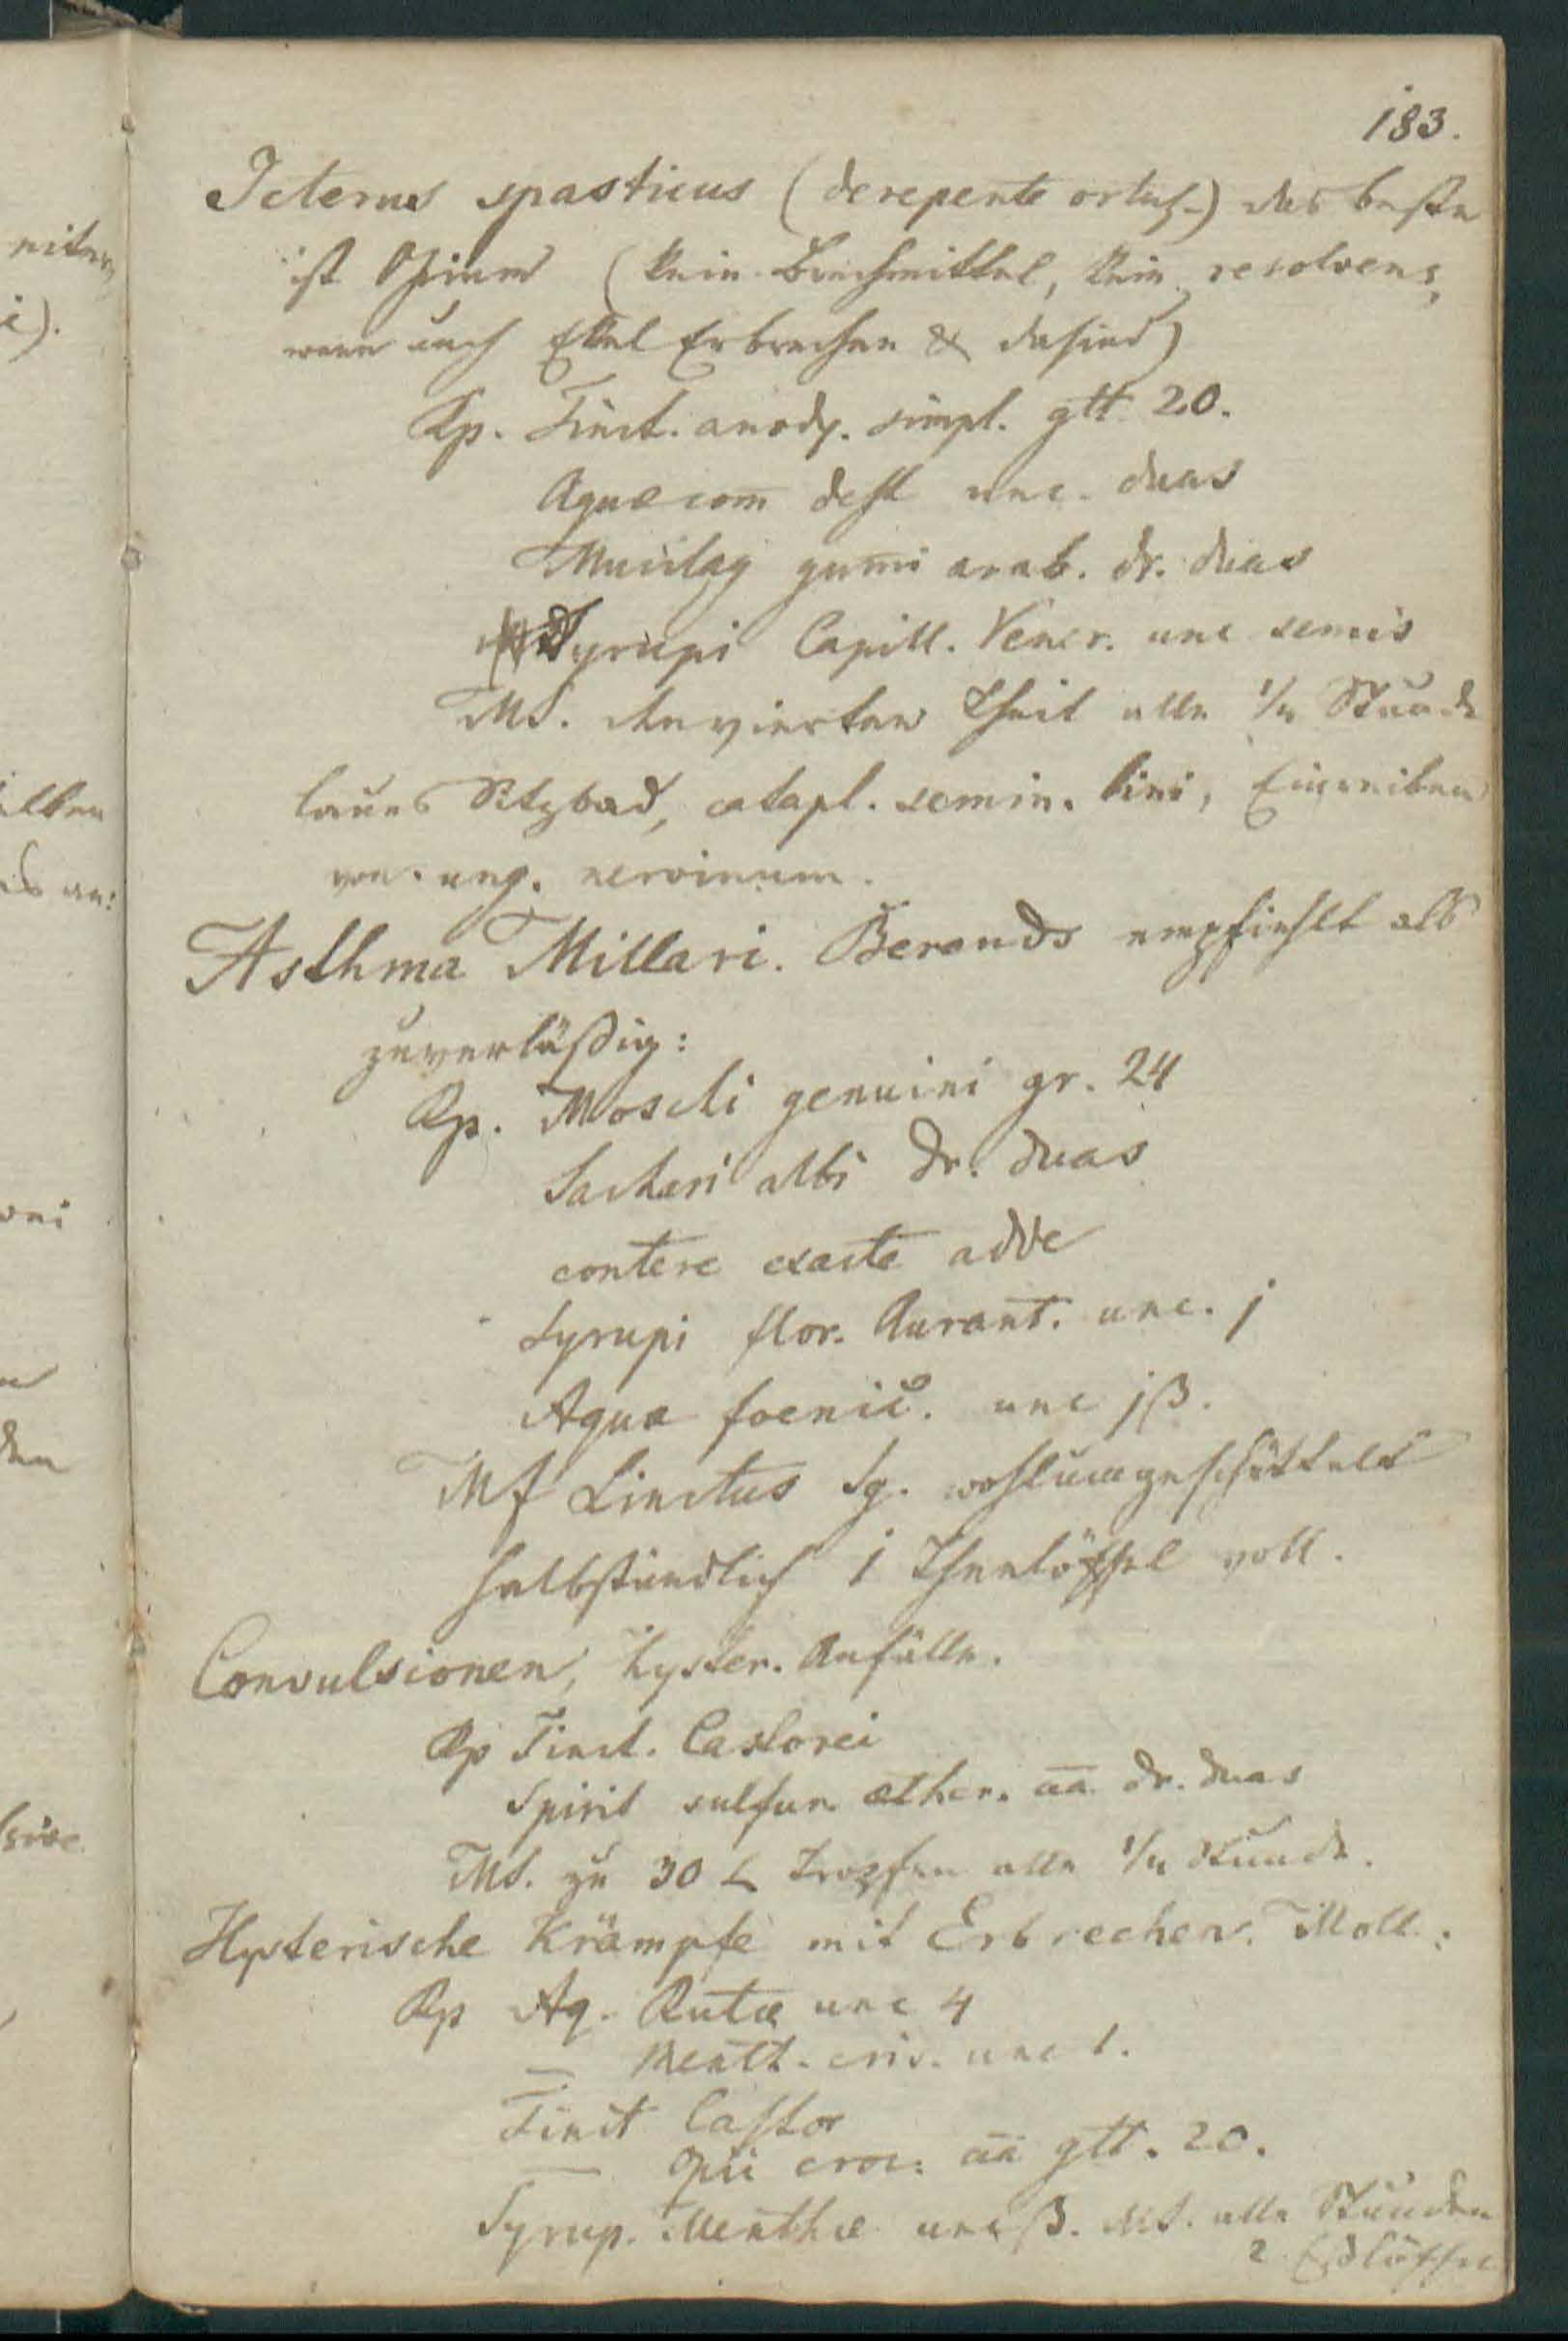 183.
Icterus spasticus (derepente ortus) das beste
ist Opium (kein Brechmittel, kein resolvens,
wenn auch Ekel Erbrechen & da sind)
Rp. Tinct. anody. simpl. gtt. 20.
Aquae com̄ dest unc. duas
Mucilag gum̄i arab. dr. duas
Syrupi Capill. Vener. unc semis
MS. den vierten Theil alle 1/4 Stunde
laues Sitzbad, catapl. semin. lini, Einreiben
von ung. nervinum.
Asthma Millari. Berends empfiehlt als
zuverläßig:
Rp. Moschi genuini gr. 24
Sachari albi dr. duas
contere exacte adde
Syrupi flor. Aurant. unc. j
Aquae foenic. unc jß.
Mf Linctus Sg. wohlumgeschüttelt
halbstündlich 1 Theelöffel voll.
Convulsionen, hyster. Anfälle.
Rp Tinct. Castorei
Spirit sulfur. aether. āā dr. duas
MS. zu 30 Tropfen alle 1/4 Stunde.
Hysterische Krämpfe mit Erbrechen. Moll:
Rp Aq. Rutae unc 4
— Menth. cris. unc 1.
Tinct Castor
— Opii croc. āā gtt. 20.
Syrup. Menthae unc ß. MS. alle Stunden
2 Eßlöffel